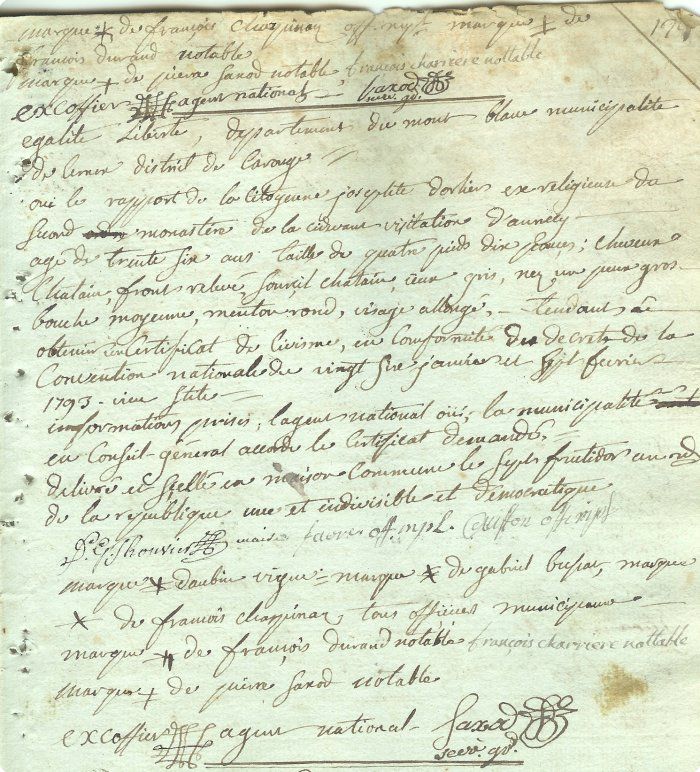 marque + de françois Charpinaz off. mpl marque + de
françois durand notable
marque + de pierre saxod notable françois charriere nottable
excoffier agent national saxod
secre. gd.
egalite Liberté, departement du mont blanc municipalite
de district de Carouge
oui le rapport de la Citoyenne josephte dorlier ex religieuse du
monastère de la cidevant visitation d'annecy
agé de trente six ans taille de quatre pieds dix pouces; cheveux
Chatain, front relevé, sourcil chatain, gris, nez un peux gros
bouche moyenne, menton rond, visage allongé, tendant à
obtenir un Certificat de Civisme, en Conformité du decrets de la
Convention nationale du vingt six janvier et sept fevrier
1793 - vieu stile
informations prises; l'agent national oui, la municipalité
en Conseil général accorde le Certificat demandé,
delivré et scellé en maison Commune le Sept fructidor an
de la republique une et indivisible et démocratique
maire favre off. mpl. off. mpl
marque + d'aubin vigne = marque + de gabriel marque
+ de françois charpinaz tous officiers municipaux
marque + de françois durand notable françois charriere nottable
marque + de pierre saxod notable
excoffier agent national saxod
secre. gd.